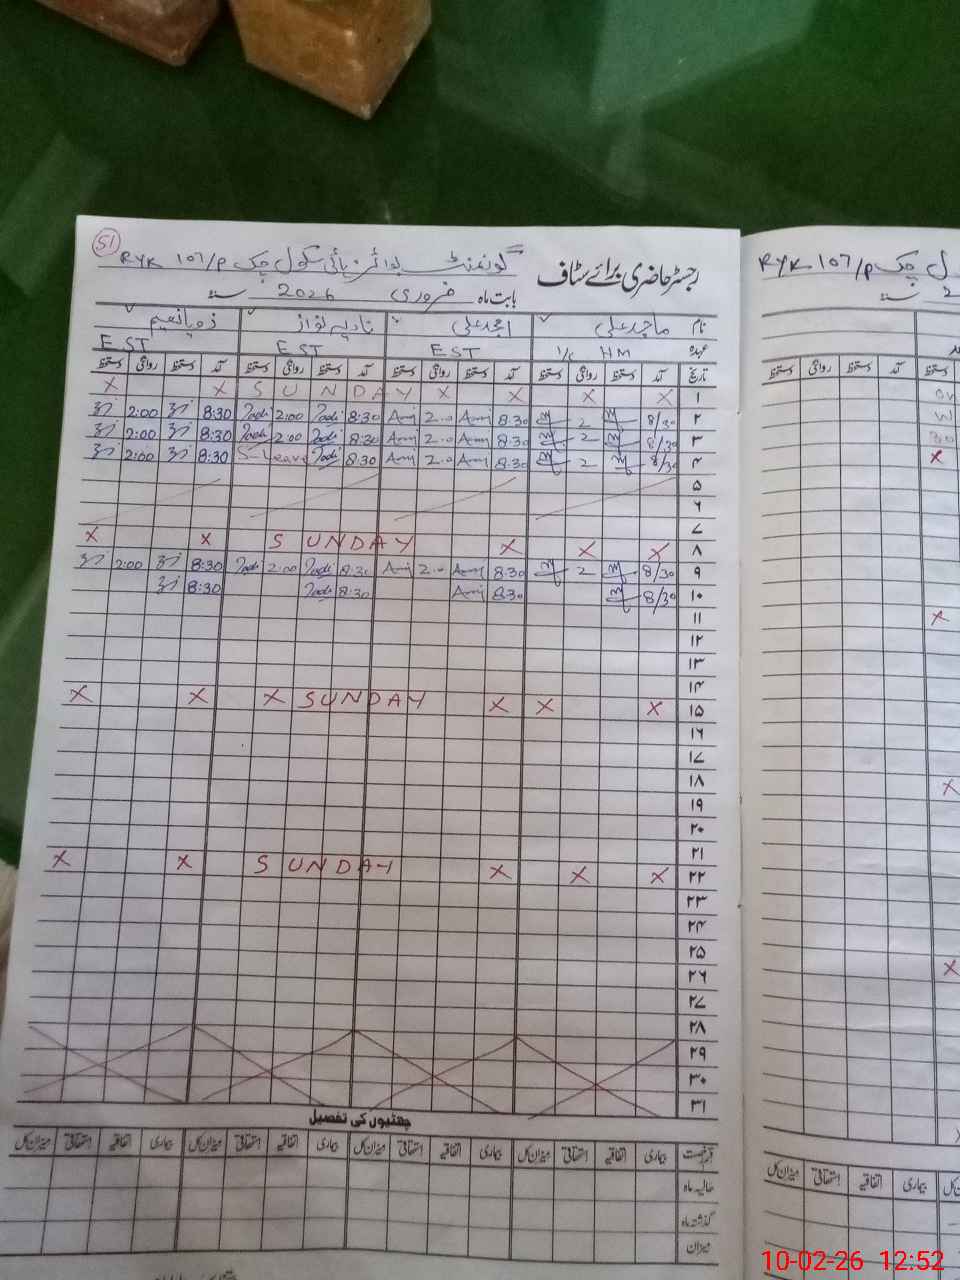 51
رجسٹر حاضری برائے سٹاف گورنمنٹ بوائز ہائی سکول چک 107/P RYK
بابت ماہ فروری 2026 سنہ
نام ماجد علی امجد علی نادیہ نواز زوبا نعیم
عہدہ I/C HM EST EST EST
تاریخ آمد دستخط روانگی دستخط آمد دستخط روانگی دستخط آمد دستخط روانگی دستخط آمد دستخط روانگی دستخط
۱ X X X X SUNDAY X X
۲ 8/30 2 8.30 Amj 2.0 Amj 8:30 Nadi 2:00 Nadi 8:30 2:00
۳ 8/30 2 8.30 Amj 2.0 Amj 8:30 Nadi 2:00 Nadi 8:30 2:00
۴ 8/30 2 8.30 Amj 2.0 Amj 8:30 Nadi S-Leave 8:30 2:00
۵
۶
۷
۸ X X X SUNDAY X X
۹ 8/30 2 8:30 Amj 2.0 Amj 8:30 Nadi 2:00 Nadi 8:30 2:00
۱۰ 8/30 8:30 Amj 8:30 Nadi 8:30
۱۱
۱۲
۱۳
۱۴
۱۵ X X X SUNDAY X X X
۱۶
۱۷
۱۸
۱۹
۲۰
۲۱
۲۲ X X X SUNDAY X X
۲۳
۲۴
۲۵
۲۶
۲۷
۲۸
۲۹
۳۰
۳۱
چھٹیوں کی تفصیل
قسم رخصت بیماری اتفاقیہ استحقاقی میزان کل بیماری اتفاقیہ استحقاقی میزان کل بیماری اتفاقیہ استحقاقی میزان کل بیماری اتفاقیہ استحقاقی میزان کل
حالیہ ماہ
گذشتہ ماہ
میزان
چک 107/P RYK
سنہ
دستخط آمد دستخط روانگی دستخط
X
X
X
X
بیماری اتفاقیہ استحقاقی میزان کل
10-02-26 12:52